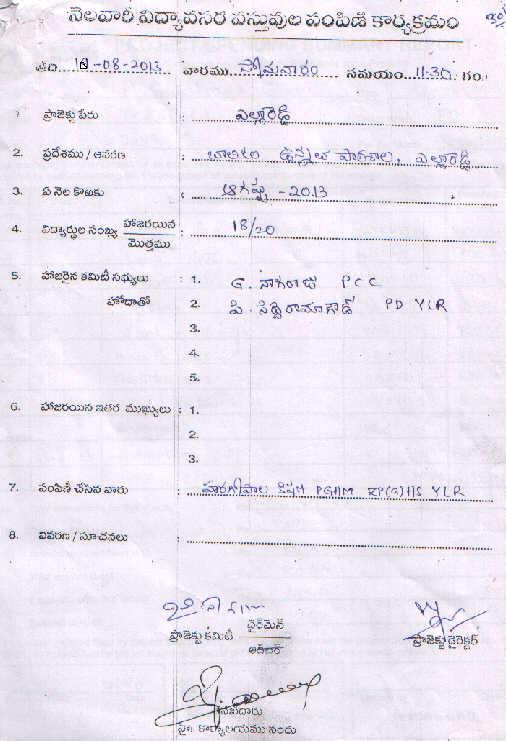 నెలవారీ విద్యావసర వస్తువుల పంపిణీ కార్యక్రమం
తేది...-08-2013 వారము సోమవారం సమయం 11-30 గం.
1. ప్రాజెక్టు పేరు : ఎల్లారెడ్డి
2. ప్రదేశము / ఆవరణ : బాలికల ఉన్నత పాఠశాల, ఎల్లారెడ్డి
3. ఏ నెల కొఱకు : ఆగష్టు - 2013
4. విద్యార్థుల సంఖ్య హాజరయిన / మొత్తము : 18/20
5. హాజరైన కమిటీ సభ్యులు : 1. G. నాగరాజు PCC
హోదాతో 2. పి. సిద్దిరామాగౌడ్ PD YLR
3.
4.
5.
6. హాజరయిన ఇతర ముఖ్యులు : 1.
2.
3.
7. పంపిణీ చేసిన వారు : PGHM ZP(G)HS YLR
8. వివరణ / సూచనలు :
ప్రాజెక్టు కమిటీ చైర్మెన్ ప్రాజెక్టు డైరెక్టర్
కార్యాలయము నందు